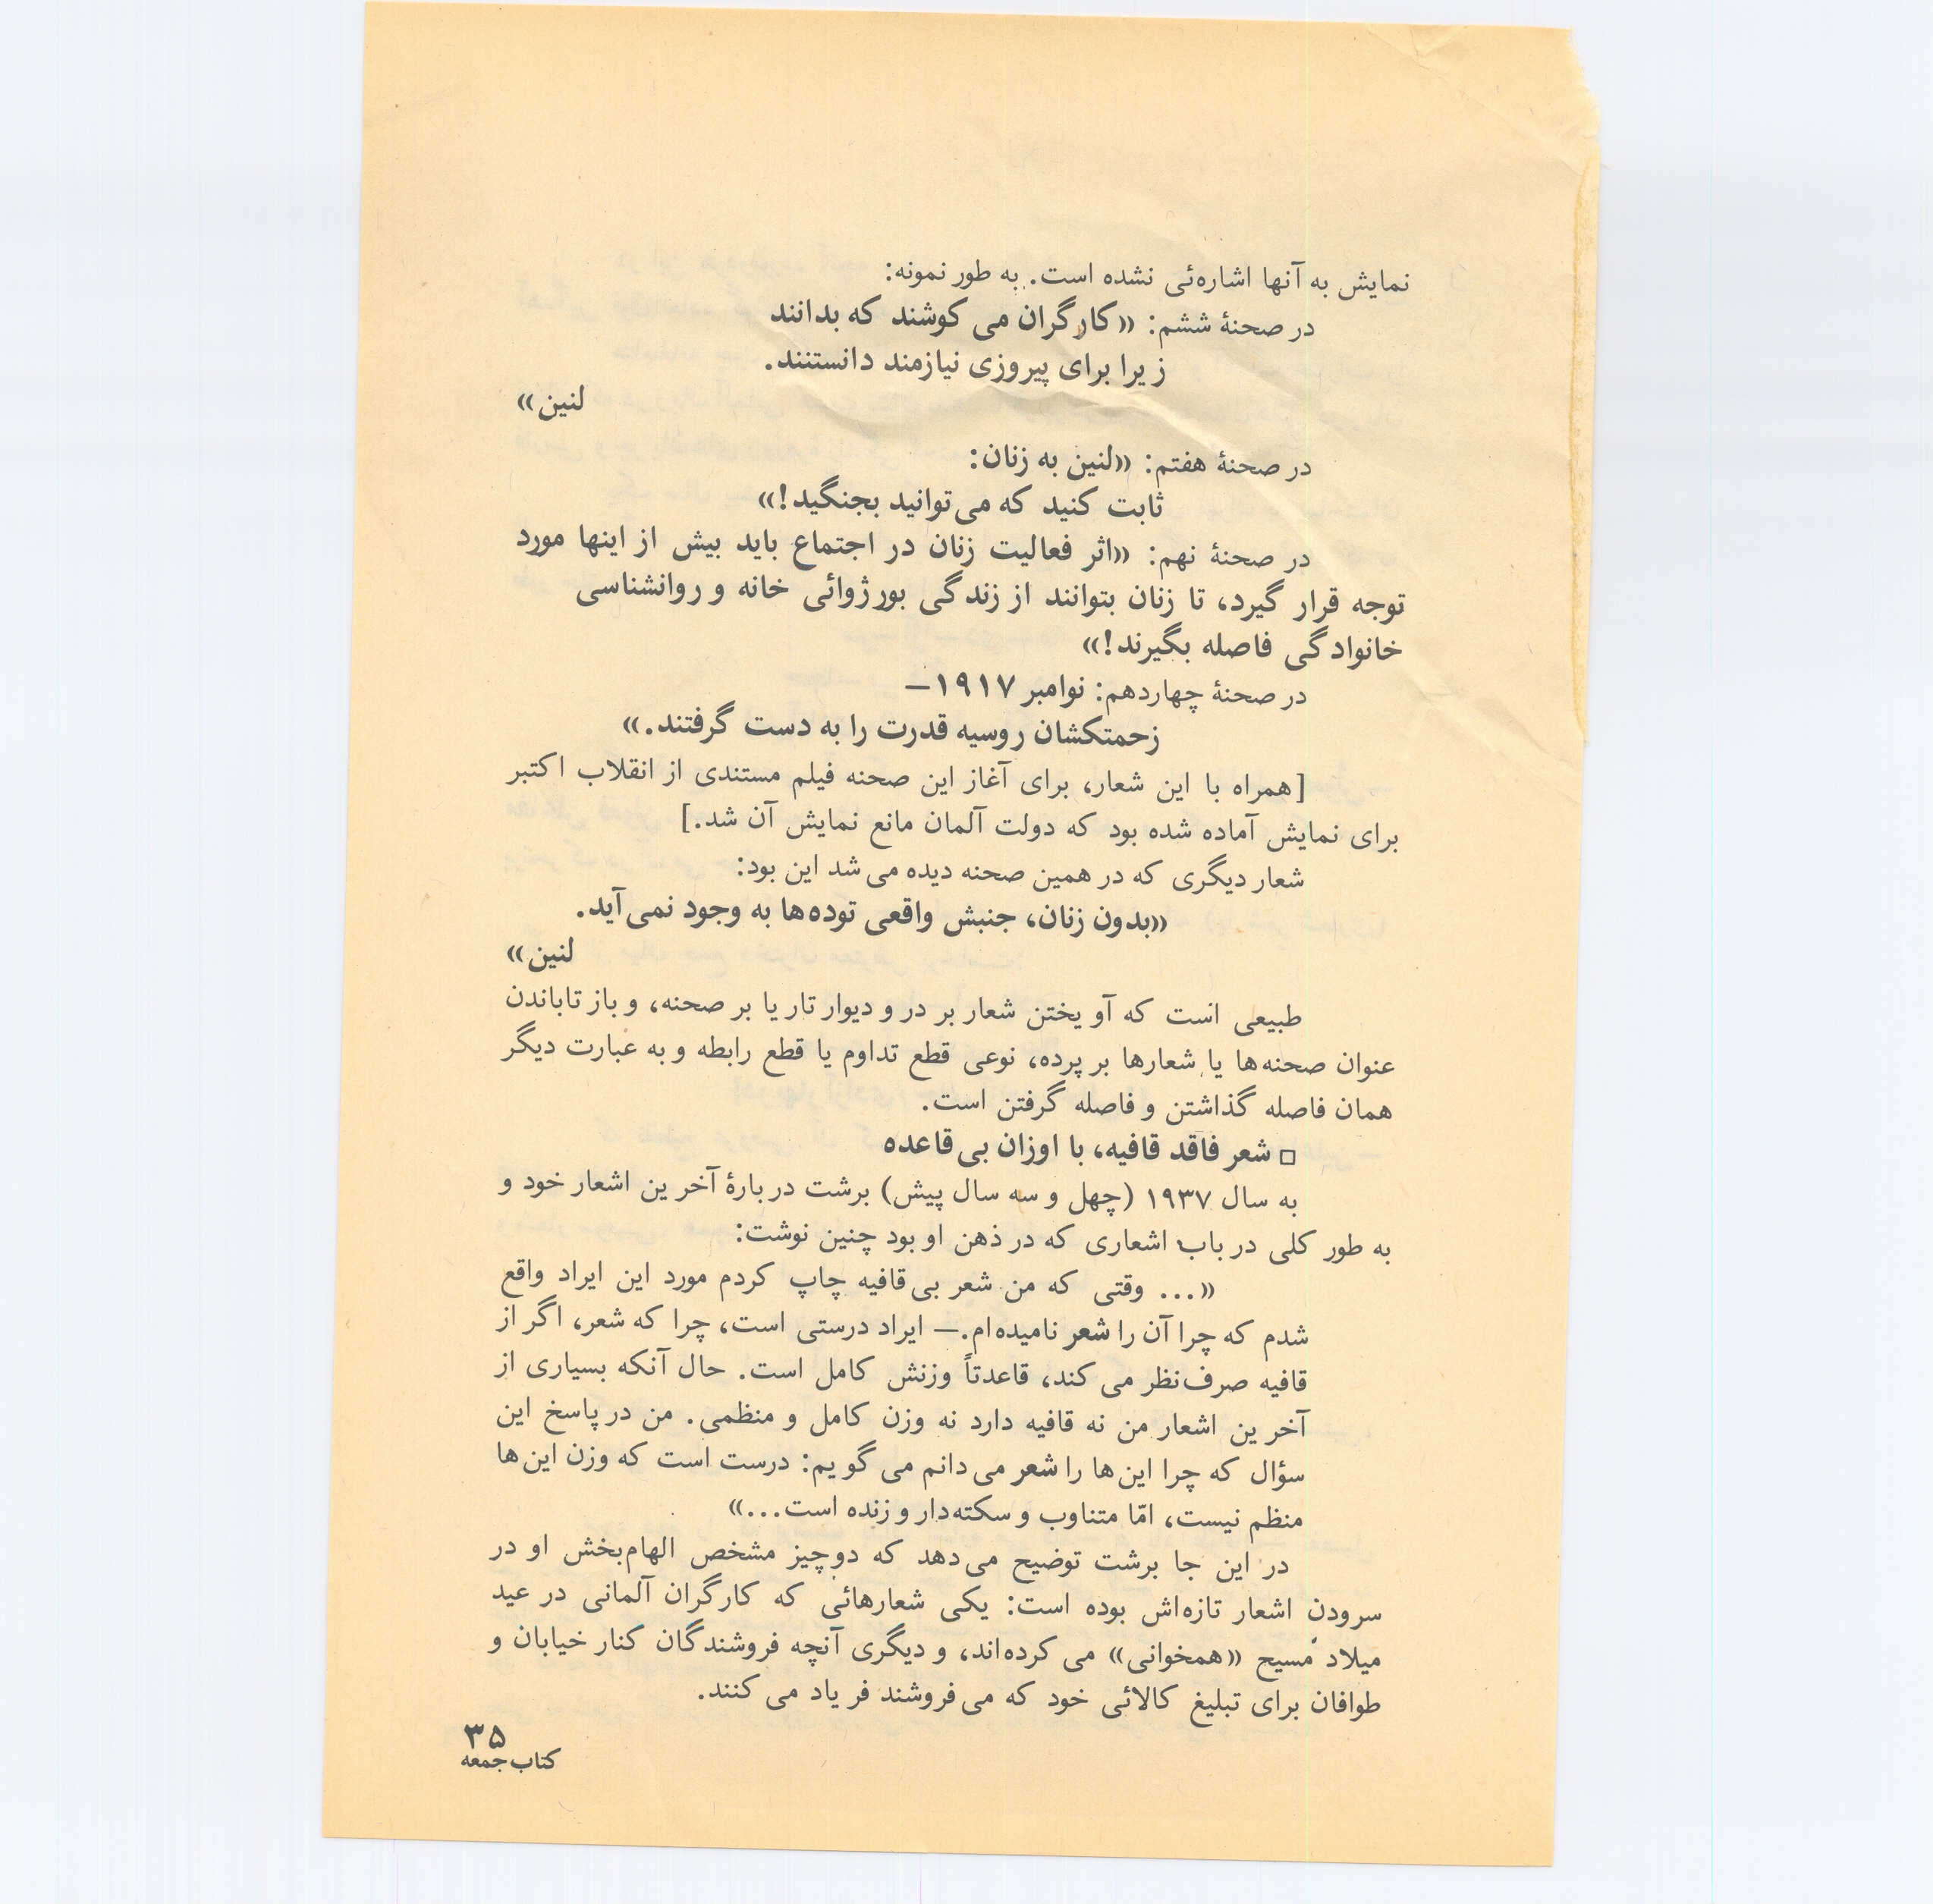 نمایش به آنها اشاره‌ئی نشده است. به طور نمونه:
در صحنهٔ ششم: «کارگران می کوشند که بدانند
زیرا برای پیروزی نیازمند دانستنند.
لنین»
در صحنهٔ هفتم: «لنین به زنان:
ثابت کنید که می‌توانید بجنگید!»
در صحنهٔ نهم: «اثر فعالیت زنان در اجتماع باید بیش از اینها مورد
توجه قرار گیرد، تا زنان بتوانند از زندگی بورژوائی خانه و روانشناسی
خانوادگی فاصله بگیرند!»
در صحنهٔ چهاردهم: نوامبر ۱۹۱۷–
زحمتکشان روسیه قدرت را به دست گرفتند.»
[همراه با این شعار، برای آغاز این صحنه فیلم مستندی از انقلاب اکتبر
برای نمایش آماده شده بود که دولت آلمان مانع نمایش آن شد.]
شعار دیگری که در همین صحنه دیده می‌شد این بود:
«بدون زنان، جنبش واقعی توده‌ها به وجود نمی‌آید.
لنین»
طبیعی است که آویختن شعار بر در و دیوار تار یا بر صحنه، و بازتاباندن
عنوان صحنه‌ها یا شعارها بر پرده، نوعی قطع تداوم یا قطع رابطه و به عبارت دیگر
همان فاصله گذاشتن و فاصله گرفتن است.
□ شعر فاقد قافیه، با اوزان بی‌قاعده
به سال ۱۹۳۷ (چهل و سه سال پیش) برشت دربارهٔ آخرین اشعار خود و
به طور کلی در باب اشعاری که در ذهن او بود چنین نوشت:
«... وقتی که من شعر بی‌قافیه چاپ کردم مورد این ایراد واقع
شدم که چرا آن را شعر نامیده‌ام.– ایراد درستی است، چرا که شعر، اگر از
قافیه صرف‌نظر می کند، قاعدتاً وزنش کامل است. حال آنکه بسیاری از
آخرین اشعار من نه قافیه دارد نه وزن کامل و منظمی. من در پاسخ این
سؤال که چرا این‌ها را شعر می‌دانم می گویم: درست است که وزن این‌ها
منظم نیست، امّا متناوب و سکته‌دار و زنده است...»
در این جا برشت توضیح می‌دهد که دوچیز مشخص الهام‌بخش او در
سرودن اشعار تازه‌اش بوده است: یکی شعارهائی که کارگران آلمانی در عید
میلاد مسیح «همخوانی» می کرده‌اند، و دیگری آنچه فروشندگان کنار خیابان و
طوافان برای تبلیغ کالائی خود که می‌فروشند فریاد می کنند.
۳۵
کتاب جمعه